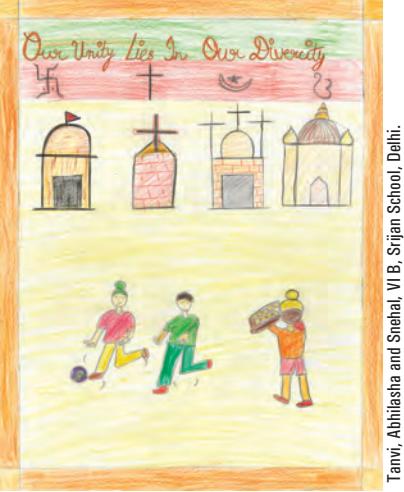 Our Unity Lies In Our Diversity
Tanvi, Abhilasha and Snehal, VI B, Srijan School, Delhi.